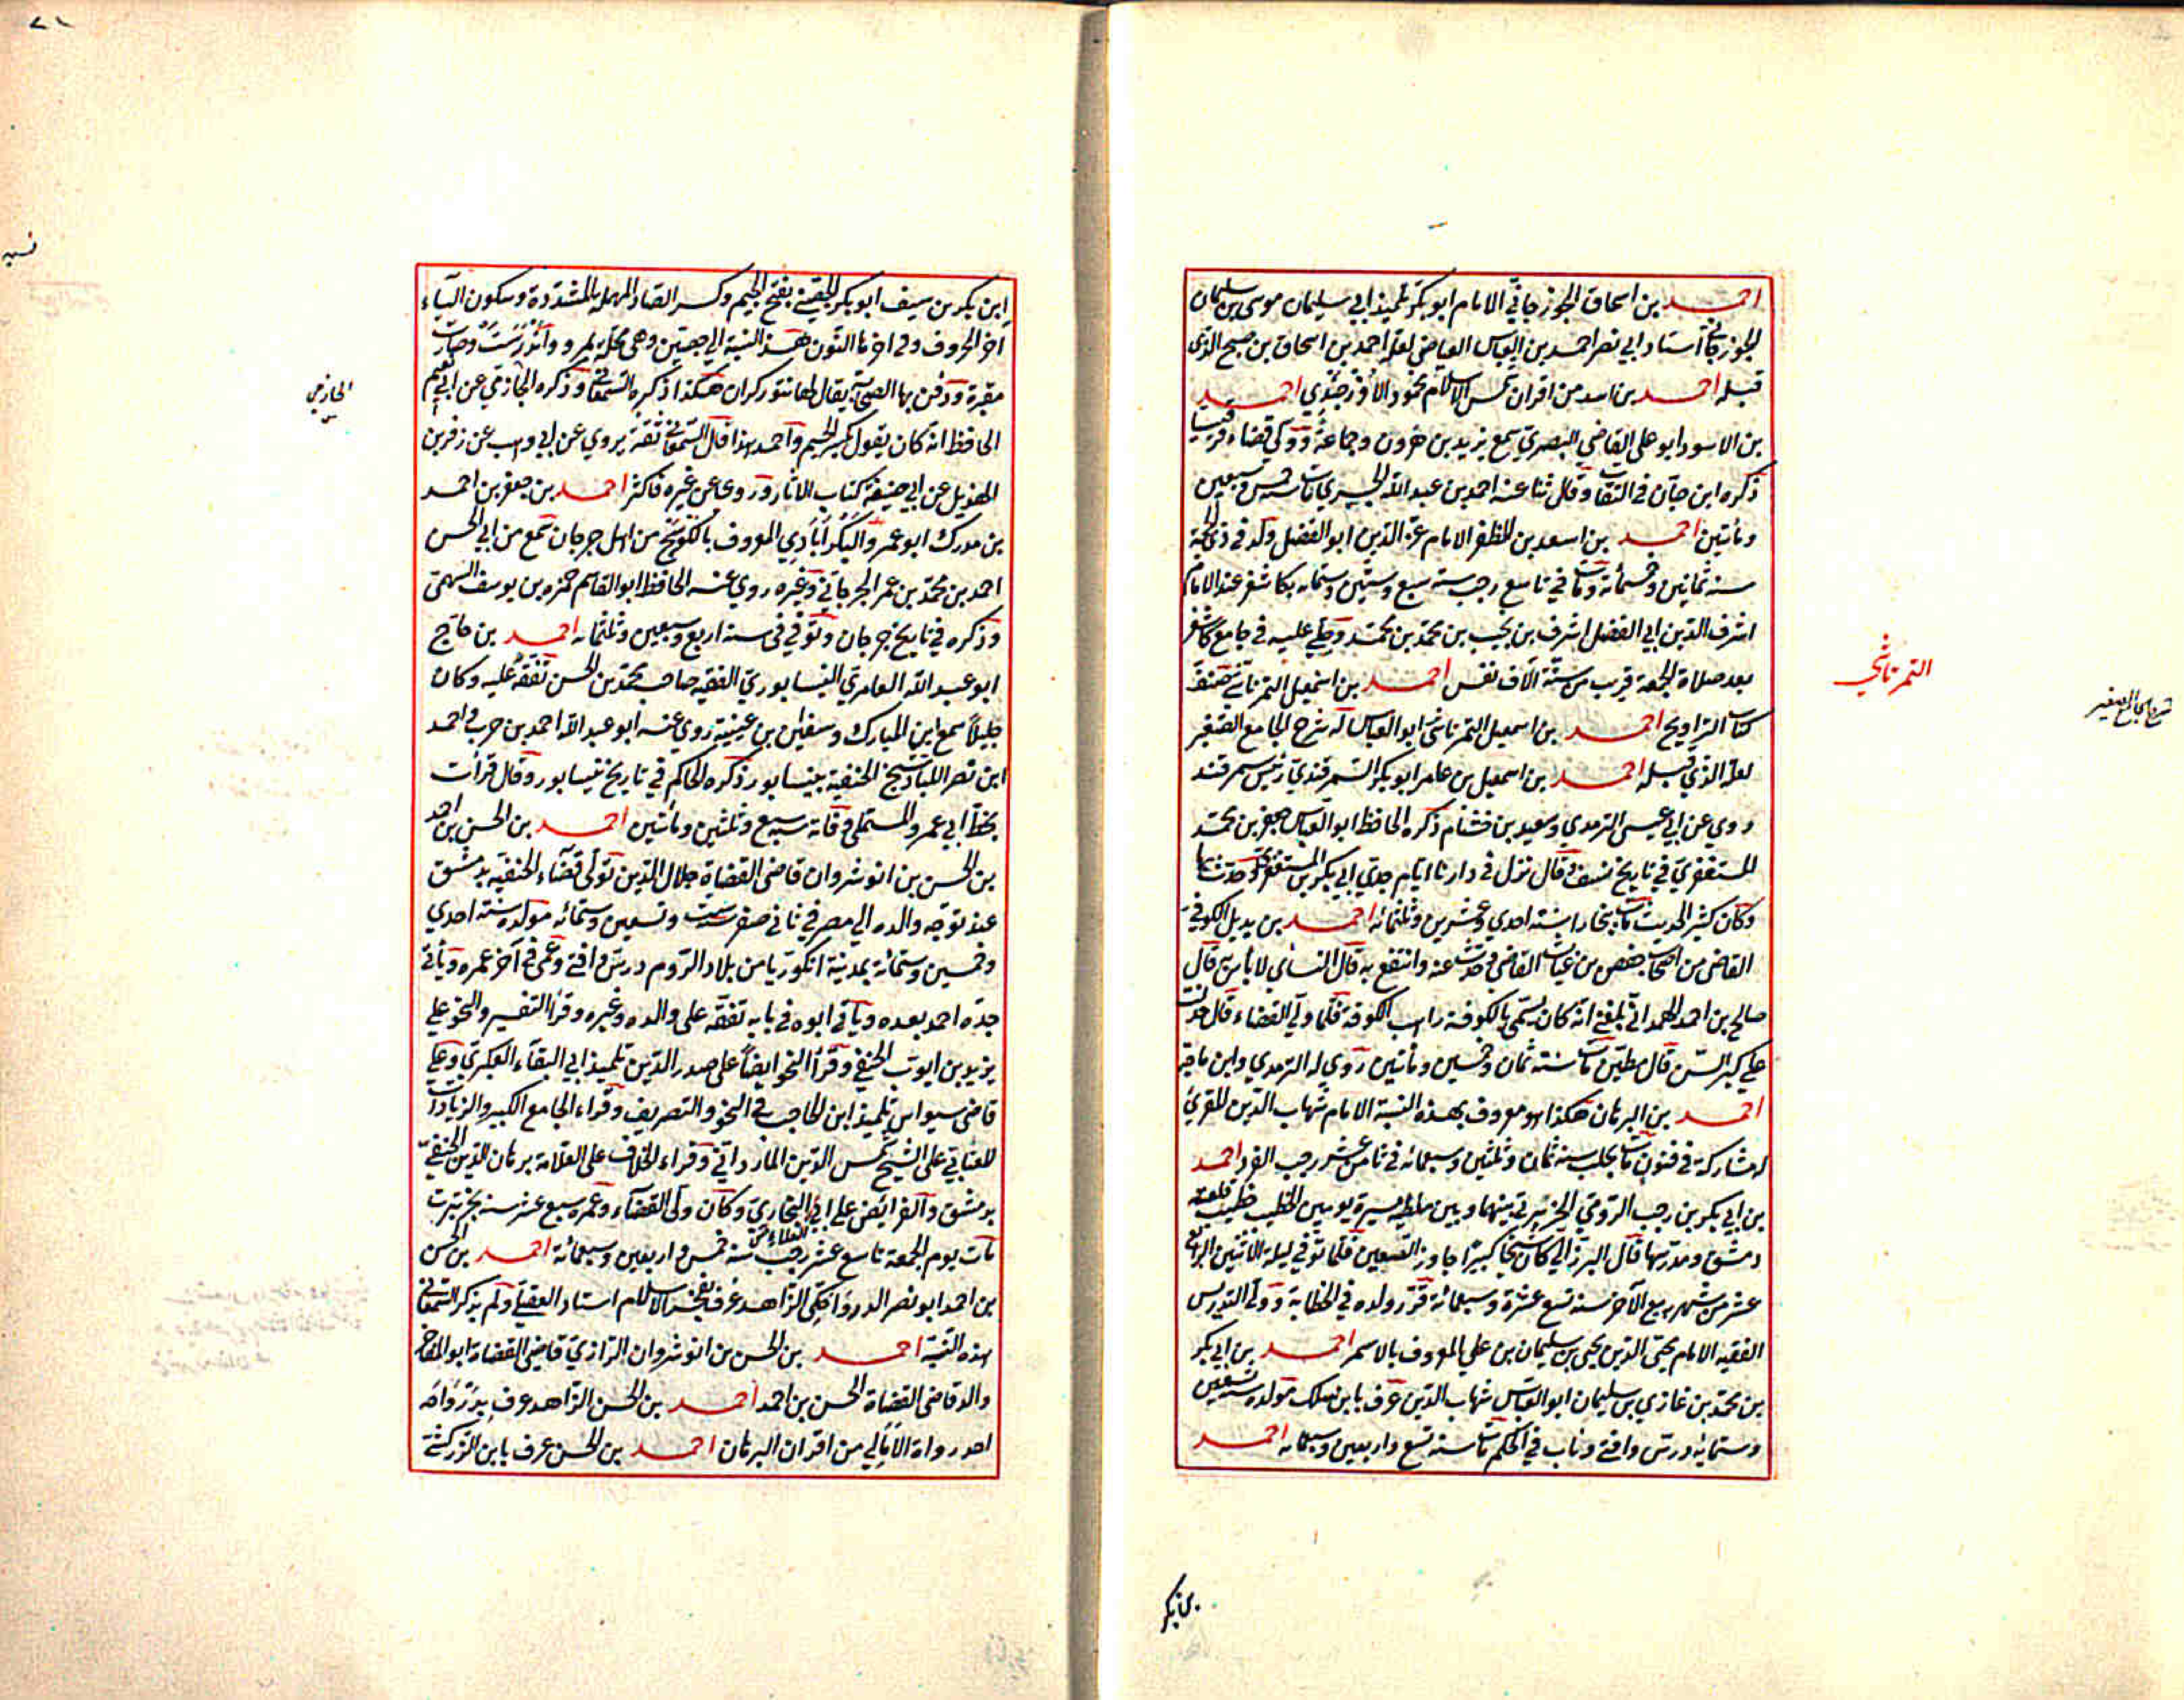 احمد بن اسحاق الجوزجاني الامام ابو بكر تلميذ ابي سليمان موسى بن سليمان
الجوزجاني استاد ابي نصر احمد بن العباس العياضي لعله احمد بن اسحاق بن صبح الذي
قبله احمد بن اسد من اقران شمس الاسلام محمود الاوزجندي احمد
بن الاسود ابو علي القاضي البصري سمع يزيد بن هرون وجماعة وولي قضاء قرقيسيا
ذكره ابن حبان في الثقات وقال ثنا عنه احمد بن عبد الله مات سنة خمس وسبعين
ومأتين احمد بن اسعد بن المظفر الامام عز الدين ابو الفضل ولد في ذي الحجة
سنه ثمانين وخمسمائة ومات في تاسع رجب سنة سبع وستين وستمائه بكاشغر عند الامام
اشرف الدين ابي الفضل اشرف بن نجيب بن محمد بن محمد وصلي عليه في جامع كاشغر
بعد صلاة الجمعة قرب من ستة آلاف نفس احمد بن اسمعيل التمرتاشي صنف
كتاب التراويح احمد بن اسمعيل التمرتاشي ابو العباس له شرح الجامع الصغير
لعله الذي قبله احمد بن اسمعيل بن عامر ابو بكر السمرقندي رئيس سمرقند
روي عن ابي عيسى الترمدي وسعيد بن خشنام ذكره الحافظ ابو العباس جعفر بن محمد
المستغفري في تاريخ نسف وقال نزل في دارنا ايام جدي ابي بكر بن المستغفري وحدث بها
وكان كثير الحديث مات ببخارا سنة احدي وعشرين وثلثمائه احمد بن بديل الكوفي
القاضي من اصحاب حفص بن غياث القاضي حدث عنه وانتفع به قال النسائي لا بأس به قال
صالح بن احمد الهمداني بلغني انه كان يسمى بالكوفة راهب الكوفة فلما ولي القضاء قال خذلت
علي كبر السن قال مطين مات سنة ثمان وخمسين ومأتين روي له الترمدي وابن ماجه
احمد بن البرهان هكذا هو معروف بهذه النسبة الامام شهاب الدين المقرئ
له مشاركة في فنون مات بحلب سنة ثمان وثلثين وسبعمائه في ثامن عشر رجب الفرد احمد
بن ابي بكر بن رجب الرومي الخرتبرتي بينهما وبين ملطية مسيرة يومين الخطيب خطيب قلعة
دمشق ومدرسها قال البرزالي كان شيخا كبيرا جاوز التسعين فلما توفي ليلة الاثنين الرابع
عشر من شهر ربيع الآخر سنة تسع عشرة وسبعمائة قرر ولده في الخطابة وولي التدريس
الفقيه الامام محيي الدين يحيى بن سليمان بن علي المعروف بالاسمر احمد بن ابي بكر
بن محمد بن غازي بن سليمان ابو العباس شهاب الدين عرف بابن سلك مولده سنة تسعين
وستمائة درس وافتي وناب في الحكم مات سنة تسع واربعين وسبعمائه احمد
بن بكر
التمرتاشي
شرح الجامع الصغير
ابن بكر بن سيف ابو بكر الجصيني بفتح الجيم وكسر الصاد المهملة المشددة وسكون الياء
اخر الحروف وفي اخرها النون هذه النسبة الي جصين وهي محلة بمرو واندرست وصارت
مقبرة ودفن بها الصحابة يقال لها تنوركران هكذا ذكره السمعاني وذكره الحازمي عن ابي نعيم
الحافظ انه كان يقول بكسر الجيم واحمد هذا قال السمعاني ثقة يروي عن ابي وهب عن زفر بن
الهذيل عن ابي حنيفة كتاب الاثار وروى عن غيره فاكثر احمد بن جعفر بن احمد
بن مدرك ابو عمرو البكراباذي المعروف بالكوسج من اهل جرجان سمع من ابي الحسن
احمد بن محمد بن عمر الجرجاني وغيره روي عنه الحافظ ابو القاسم حمزه بن يوسف السهمي
وذكره في تاريخ جرجان وتوفي في سنة اربع وسبعين وثلثمائه احمد بن حاج
ابو عبد الله العامري النيسابوري الفقيه صاحب محمد بن الحسن تفقه عليه وكان
جليلا سمع ابن المبارك وسفين بن عيينة روي عنه ابو عبد الله احمد بن حرب واحمد
ابن نصر اللباد شيخ الحنفية بنيسابور ذكره الحاكم في تاريخ نيسابور وقال قرأت
بخط ابي عمرو المستملي وفاته سنة سبع وثلثين ومأتين احمد بن الحسن بن احمد
بن الحسن بن انوشروان قاضي القضاة جلال الدين تولى قضاء الحنفيه بدمشق
عند توجه والده الي مصر في ثاني صفر سنة ست وتسعين وستمائه مولده سنة احدي
وخمسين وستمائة بمدينة انكوريا من بلاد الروم درس وافتي وعمي في آخر عمره ويأتي
جده احمد بعده ويأتي ابوه في بابه تفقه على والده وغيره وقرأ التفسير والنحو علي
يزيد بن ايوب الحنفي وقرأ النحو ايضا علي صدر الدين تلميذ ابي البقاء العكبري وعلي
قاضي سيواس تلميذ ابن الحاجب في النحو والتصريف وقراء الجامع الكبير والزيادات
للعتابي على الشيخ شمس الدين المارداني وقراء الخلاف على العلامة برهان الدين الحنفي
بدمشق والفرائض على ابي العلاء البخاري وكان ولي القضاء وعمره سبع عشر سنة بخرتبرت
مات يوم الجمعة تاسع عشر رجب سنة خمس واربعين وسبعمائة احمد بن الحسن
بن احمد ابو نصر الدرواحكي الزاهد عرف بفخر الاسلام استاد العقيلي ولم يذكر السمعاني
هذه النسبة احمد بن الحسن بن انوشروان الرازي قاضي القضاة ابو المفاخر
والد قاضي القضاة الحسن بن احمد احمد بن الحسن الزاهد عرف بدرواحه
احد رواة الامالي من اقران البرهان احمد بن الحسن عرف بابن الزركشي
الحازمي